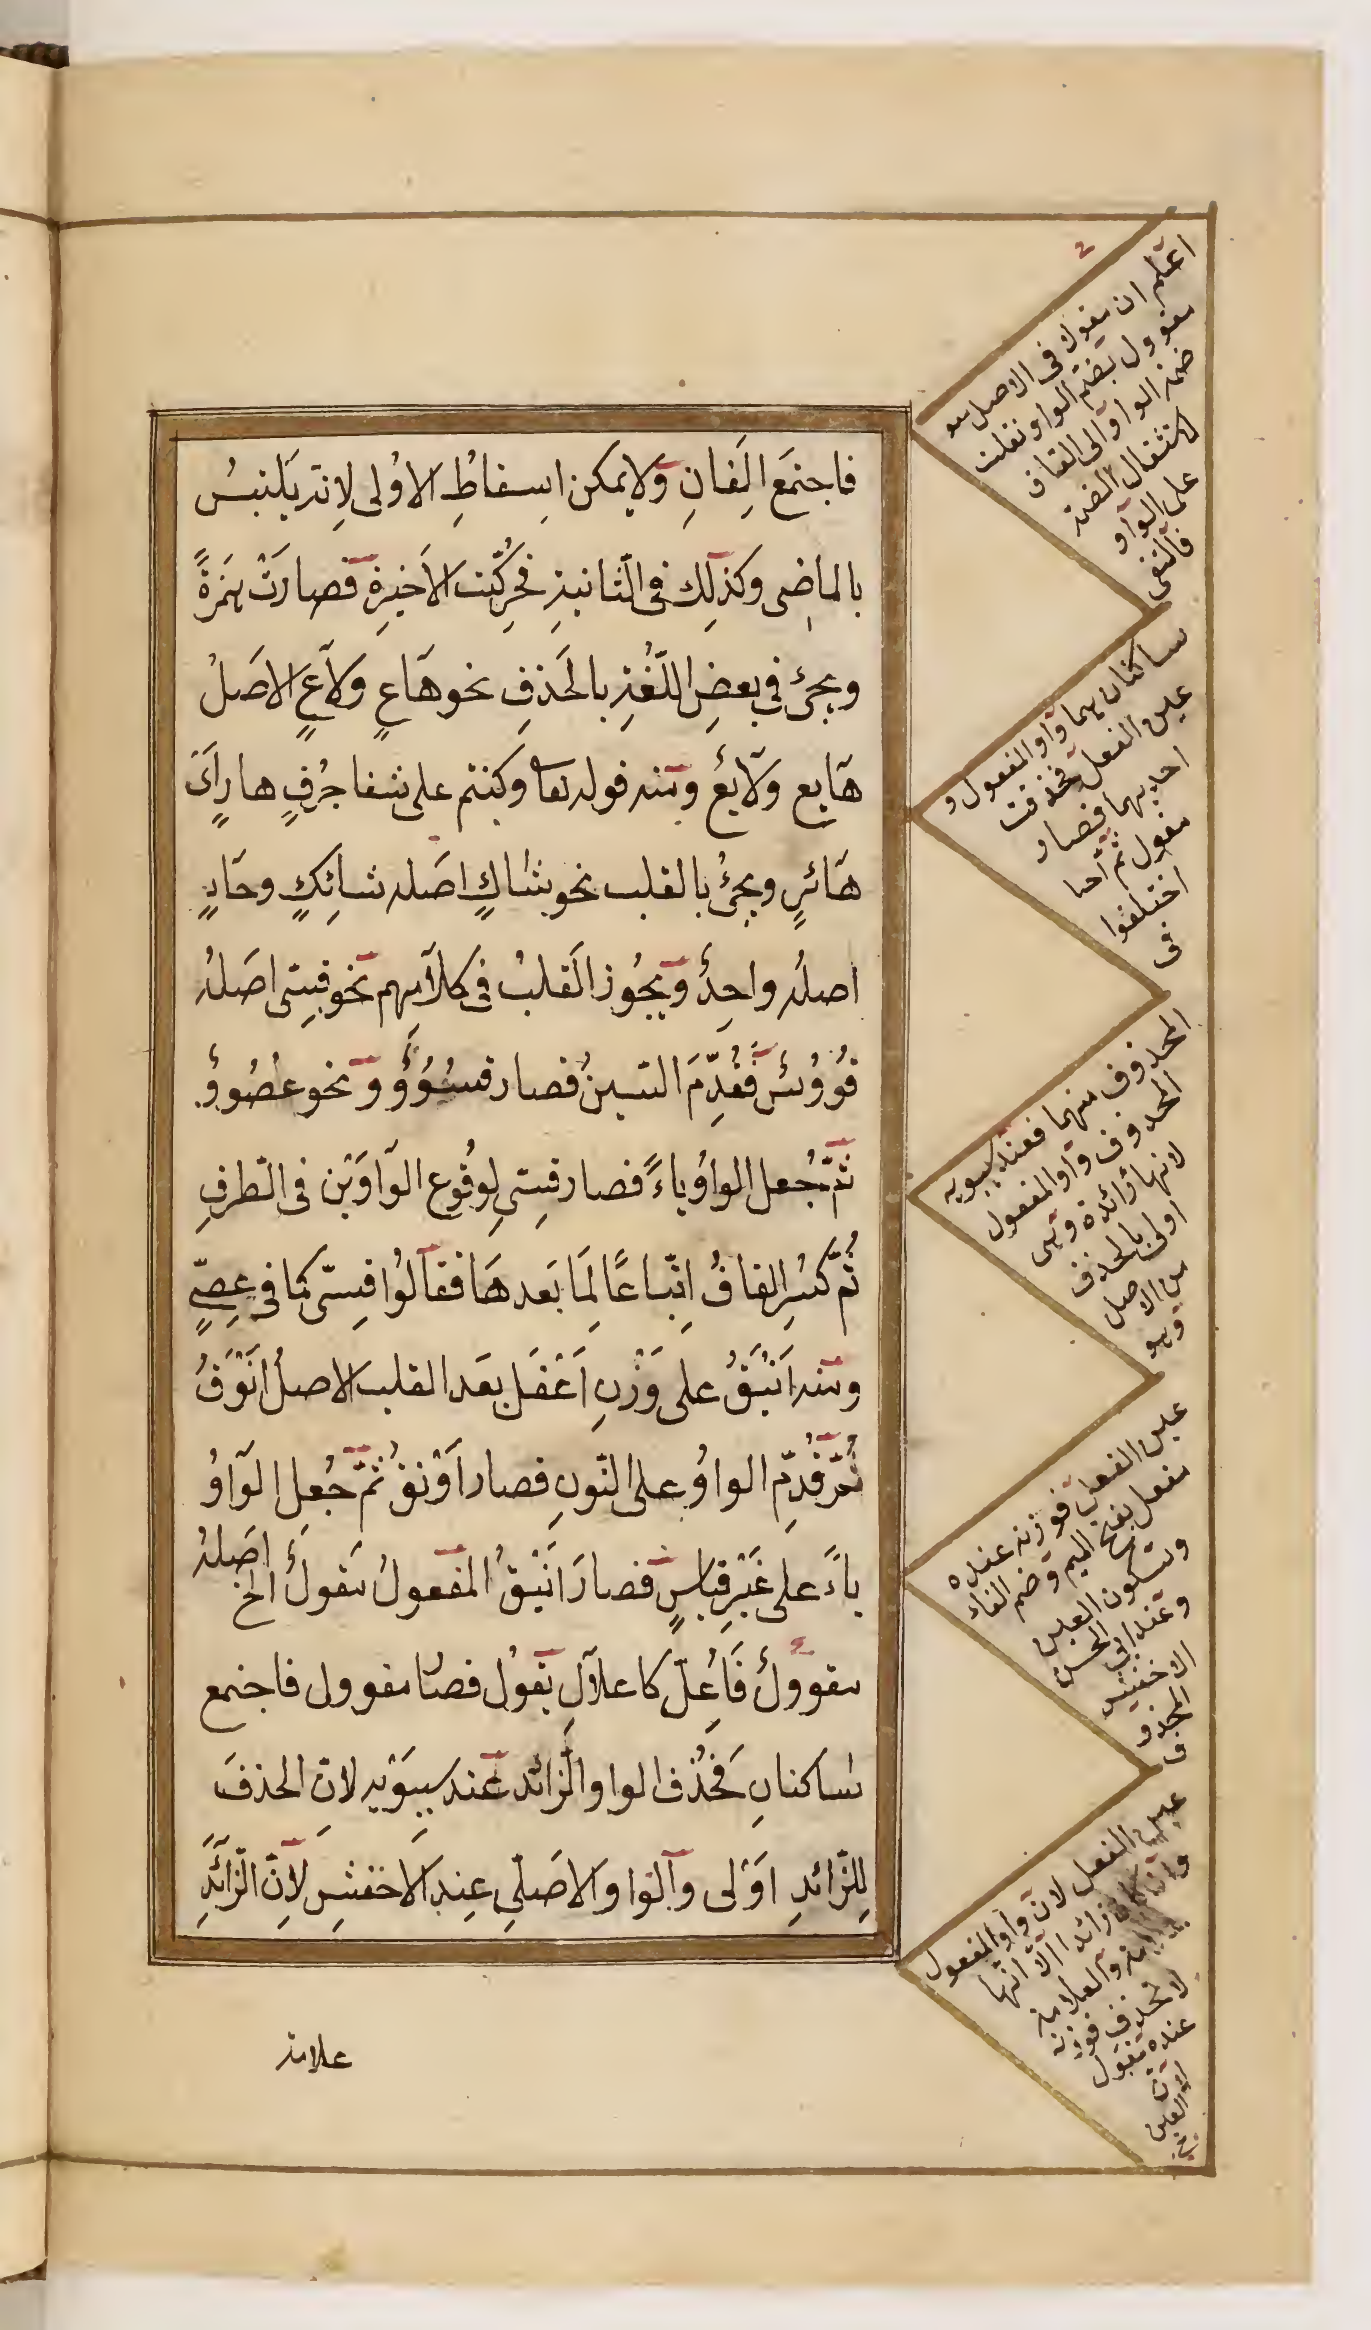 فاجتمَع الِفانِ وَلا يمكن اِسقاطِ الاوُلى لِانّه يَلتبسُ
بالماضِى وكذلِك فى الثّانيةِ فحُرِّكَت الاَخيرةِ فصارَتْ همَزةً
ويجىُٔ فى بعضِ اللّغةِ بالحَذفِ نحو هَاعٍ ولَاعٍ الاصَلُ
هَايع ولَايعُ ومنه قوله تعا وكنتم على شفا جرُفٍ هارٍ اَىْ
هَائرٍ ويجىُٔ بالقلب نحو شاكٍ اصَله شائِكٍ وحَادٍ
اصلُه واحِدٌ وَيجُوز القَلبُ فى كلَامِهم نحو قِسِّى اصَلهُ
قُوُوسٌ فَقُدِّمَ السّينُ فصار قسُوُوٌ ونحو عُصُووٌ
ثمّ جُعل الواوُ ياءً فصار قِسّىٍ لِوقُوع الوَاوَيْنِ فى الّطرفِ
ثُمّ كسُرِ القافُ اِتّباعًا لِمَا بَعدهَا فقالُوا قِسّى كما فى عِصِّىٍ
ومنه اَيْنَقُ على وَزْنِ اَعْفَل بعَد القلب الاصلُ اَنْوَقُ
ثمّ قُدِّم الواوُ على النّونِ فصار اَوْنقُ ثمَّ جُعل الوَاوُ
ياءً على غَيْرِ قياسٍ فصارَ اَيْنَقُ المَفعولُ مَقولٌ الخ اصَلهُ
مقوولٌ فَاُعِلّ كاعلَالِ يَقوُل فصار مقوول فاجتمع
ساكنانِ فحَُذف الواو الَزّائد عنَد سيبَوَيْه لانّ الحذفَ
لِلزّائدِ اوَلى والواو الاصَلّى عِند الاخفشِ لاِنّ الزّائَدِ
علامة
اعلم ان مقول فى الاصل
مقوول بضم الواو نقلت
ضمة الواو الى القاف
لاستثقال الضمة
على الواو
فالتقى
ساكنان هما واو المفعول و
عين الفعل فحذفت
احديهما فصار
مقول ثم
اختلفوا
فى
المحذوف منهما فعند سيبويه
المحذوف واو المفعول
لانها زائدة وهى
اولى بالحذف
من الاصل
وهو
عين الفعل فوزنه عنده
مفعل بفتح الميم وضم الفاء
وسكون العين
وعند ابى الحسن
الاخفش
المحذو
ف
عين الفعل لان واو المفعول
وان كان زائدا الا انها
والعلامة
لا تحذف فوزنه
عنده مفول
لان
العين